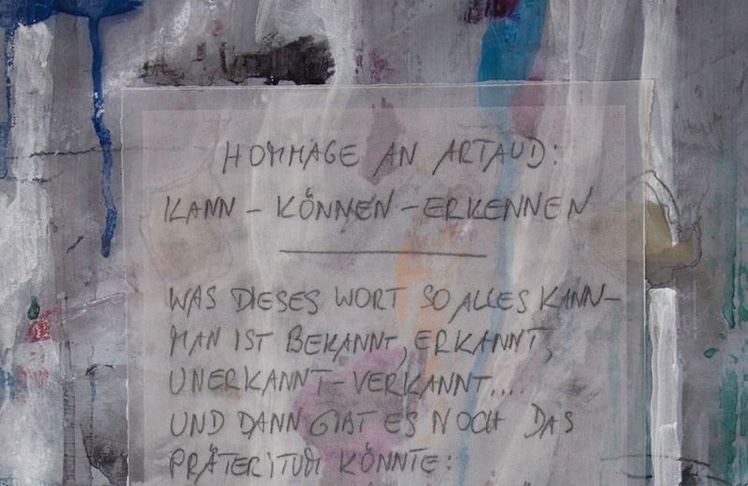 HOMMAGE AN ARTAUD:
KANN – KÖNNEN – ERKENNEN
WAS DIESES WORT SO ALLES KANN –
MAN IST BEKANNT, ERKANNT,
UNERKANNT – VERKANNT....
UND DANN GIBT ES NOCH DAS
PRÄTERITUM KÖNNTE: